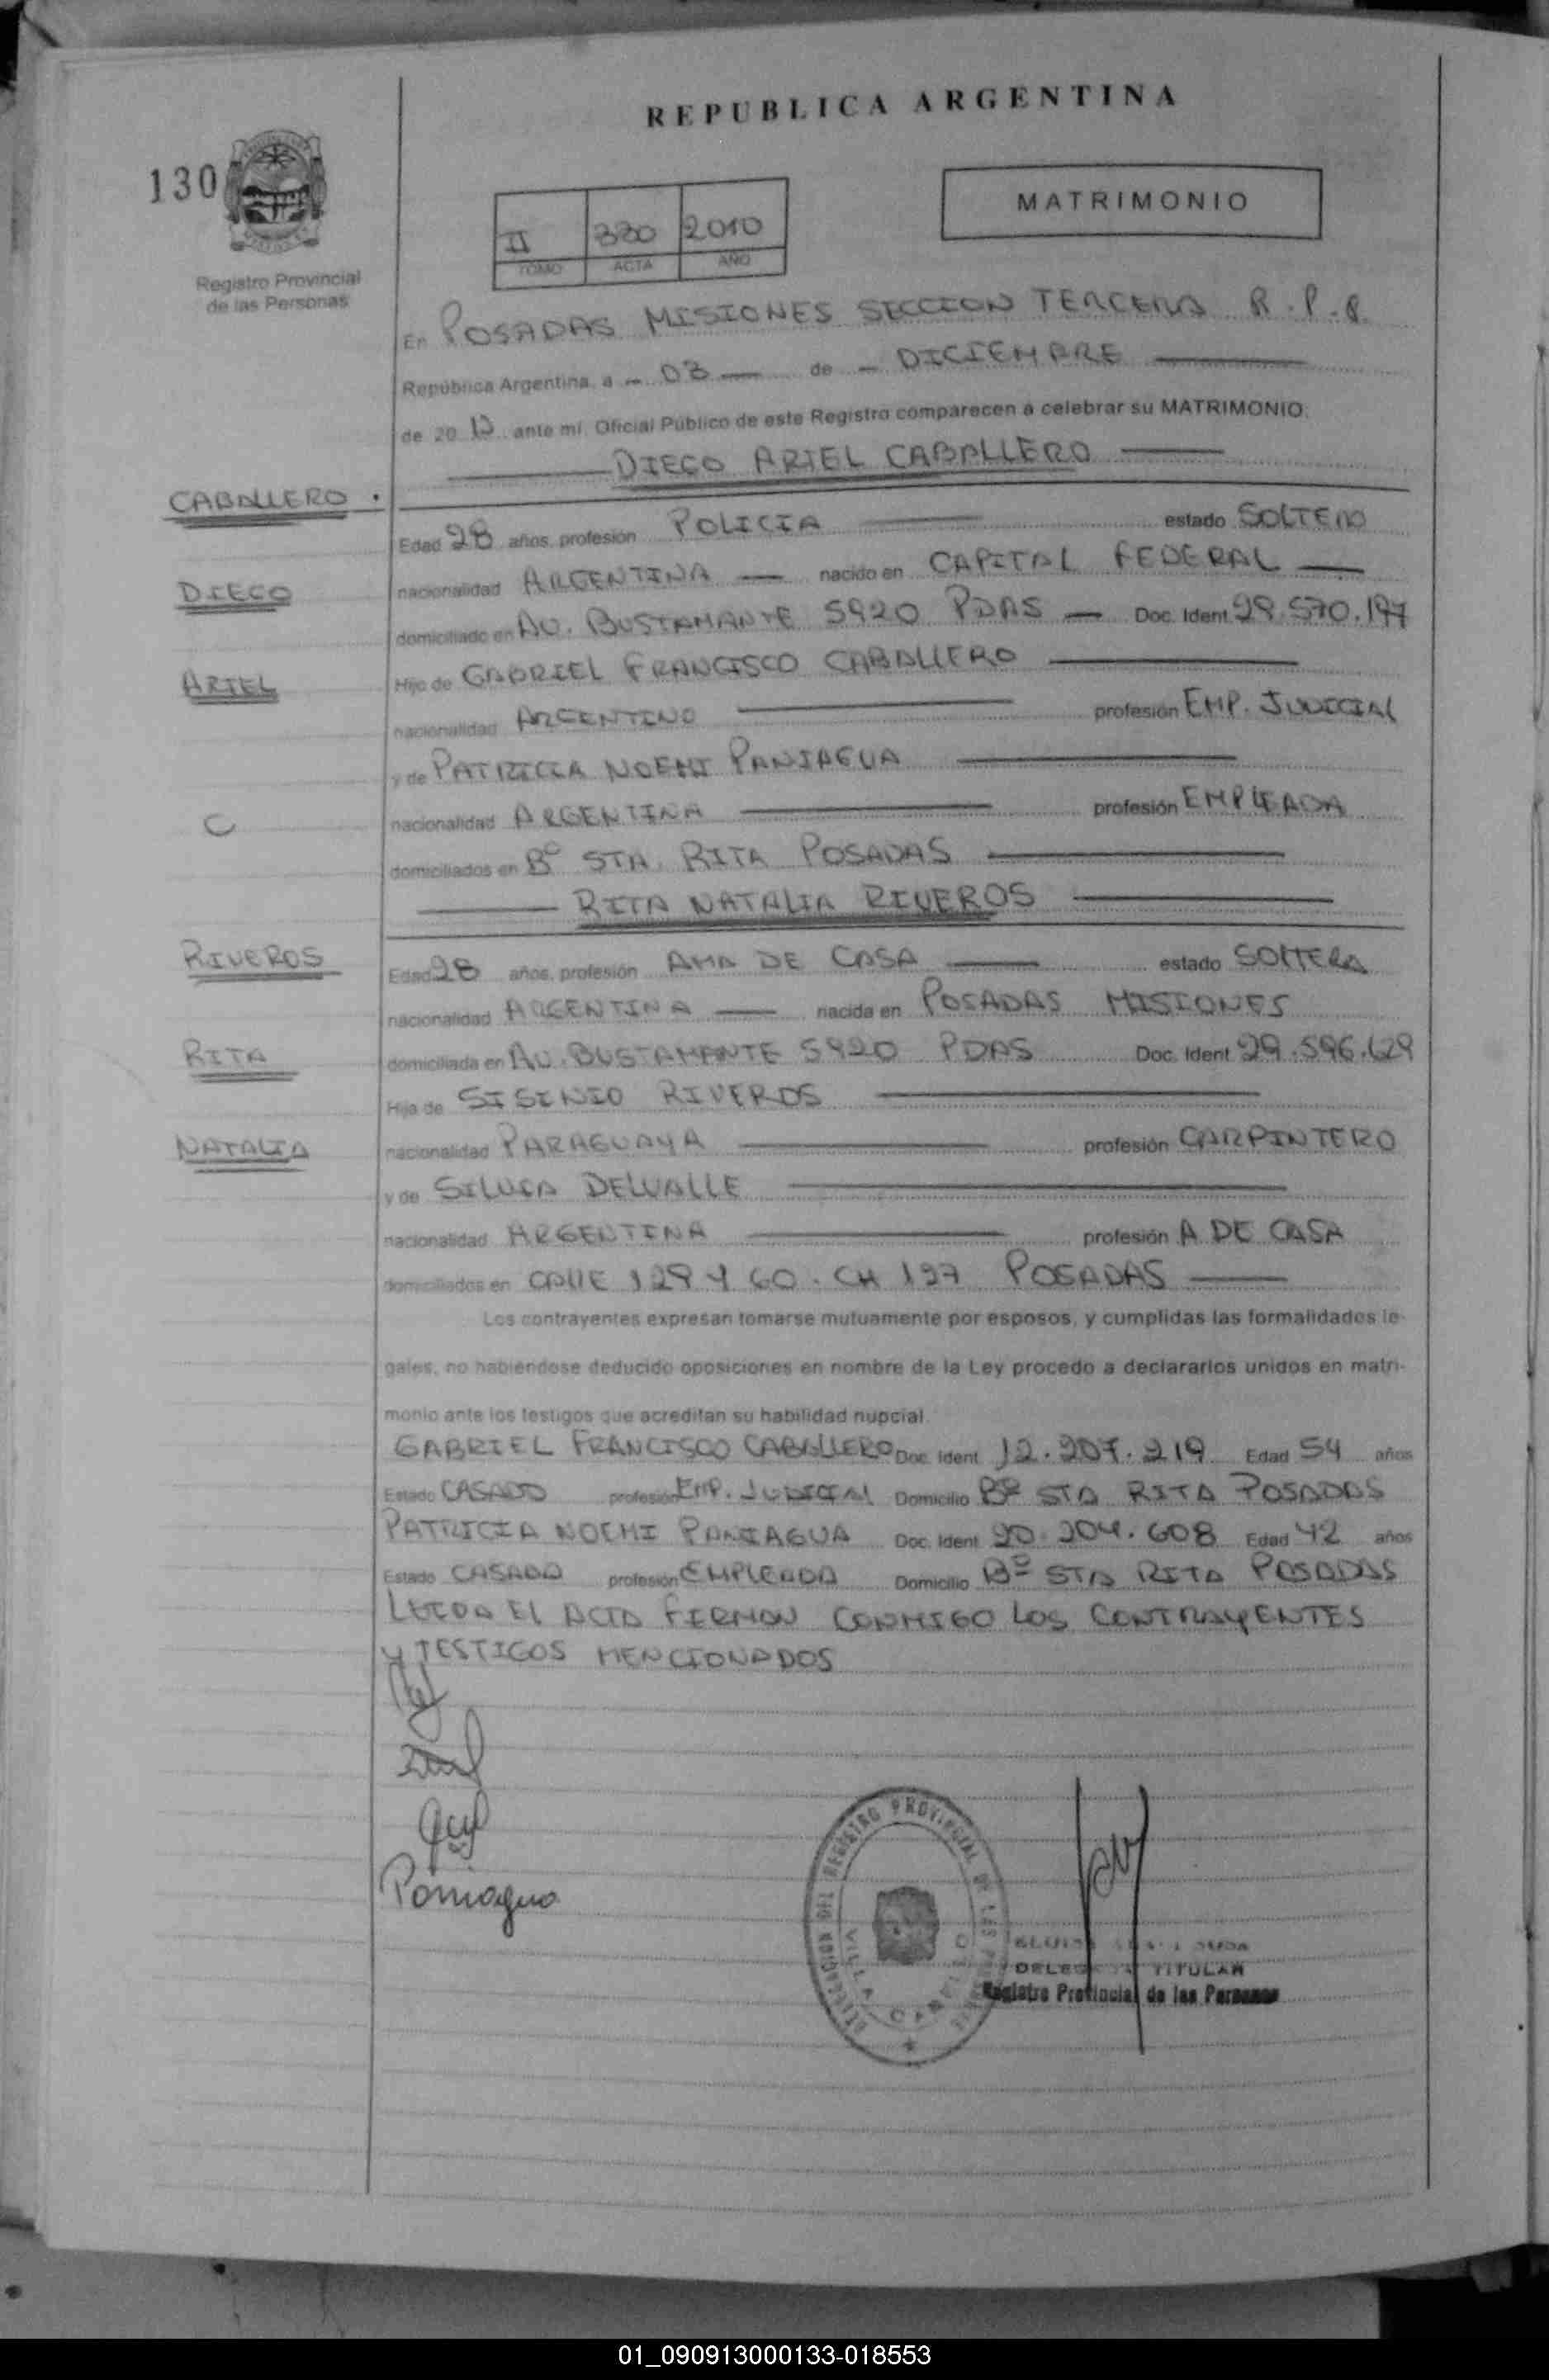 REPUBLICA ARGENTINA
130
MATRIMONIO
II 330 2010
TOMO ACTA AÑO
Registro Provincial
de las Personas
En POSADAS MISIONES SECCION TERCERA R.P.P.
República Argentina, a - 03 — de - DICIEMBRE
de 20 10 ante mí, Oficial Público de este Registro comparecen a celebrar su MATRIMONIO:
DIEGO ARIEL CABALLERO
CABALLERO
Edad 28 años, profesión POLICIA estado SOLTERO
DIEGO
nacionalidad ARGENTINA — nacido en CAPITAL FEDERAL —
domiciliado en AV. BUSTAMANTE 5920 PDAS — Doc. Ident. 29.570.197
ARIEL
Hijo de GABRIEL FRANCISCO CABALLERO
nacionalidad ARGENTINO profesión EMP. JUDICIAL
y de PATRICIA NOEMI PANIAGUA
C
nacionalidad ARGENTINA profesión EMPLEADA
domiciliados en Bº STA. RITA POSADAS
RITA NATALIA RIVEROS
RIVEROS
Edad 28 años, profesión AMA DE CASA estado SOLTERA
nacionalidad ARGENTINA — nacida en POSADAS MISIONES
RITA
domiciliada en AV. BUSTAMANTE 5920 PDAS Doc. Ident. 29.596.629
Hija de SISINIO RIVEROS
NATALIA
nacionalidad PARAGUAYA profesión CARPINTERO
y de SILVIA DELVALLE
nacionalidad ARGENTINA profesión A DE CASA
domiciliados en CALLE 129 Y 60. CH 197 POSADAS
Los contrayentes expresan tomarse mutuamente por esposos, y cumplidas las formalidades le-
gales, no habiéndose deducido oposiciones en nombre de la Ley procedo a declararlos unidos en matri-
monio ante los testigos que acreditan su habilidad nupcial.
GABRIEL FRANCISCO CABALLERO Doc. Ident. 12.207.219 Edad 54 años
Estado CASADO profesión EMP. JUDICIAL Domicilio Bº STA RITA POSADAS
PATRICIA NOEMI PANIAGUA Doc. Ident. 20.204.608 Edad 42 años
Estado CASADA profesión EMPLEADA Domicilio Bº STA RITA POSADAS
LEIDA EL ACTA FIRMAN CONMIGO LOS CONTRAYENTES
Y TESTIGOS MENCIONADOS
Paniagua
DELEGACION DEL REGISTRO PROVINCIAL DE LAS
VILLA
TITULAR
Registro Provincial de las Personas
01_090913000133-018553